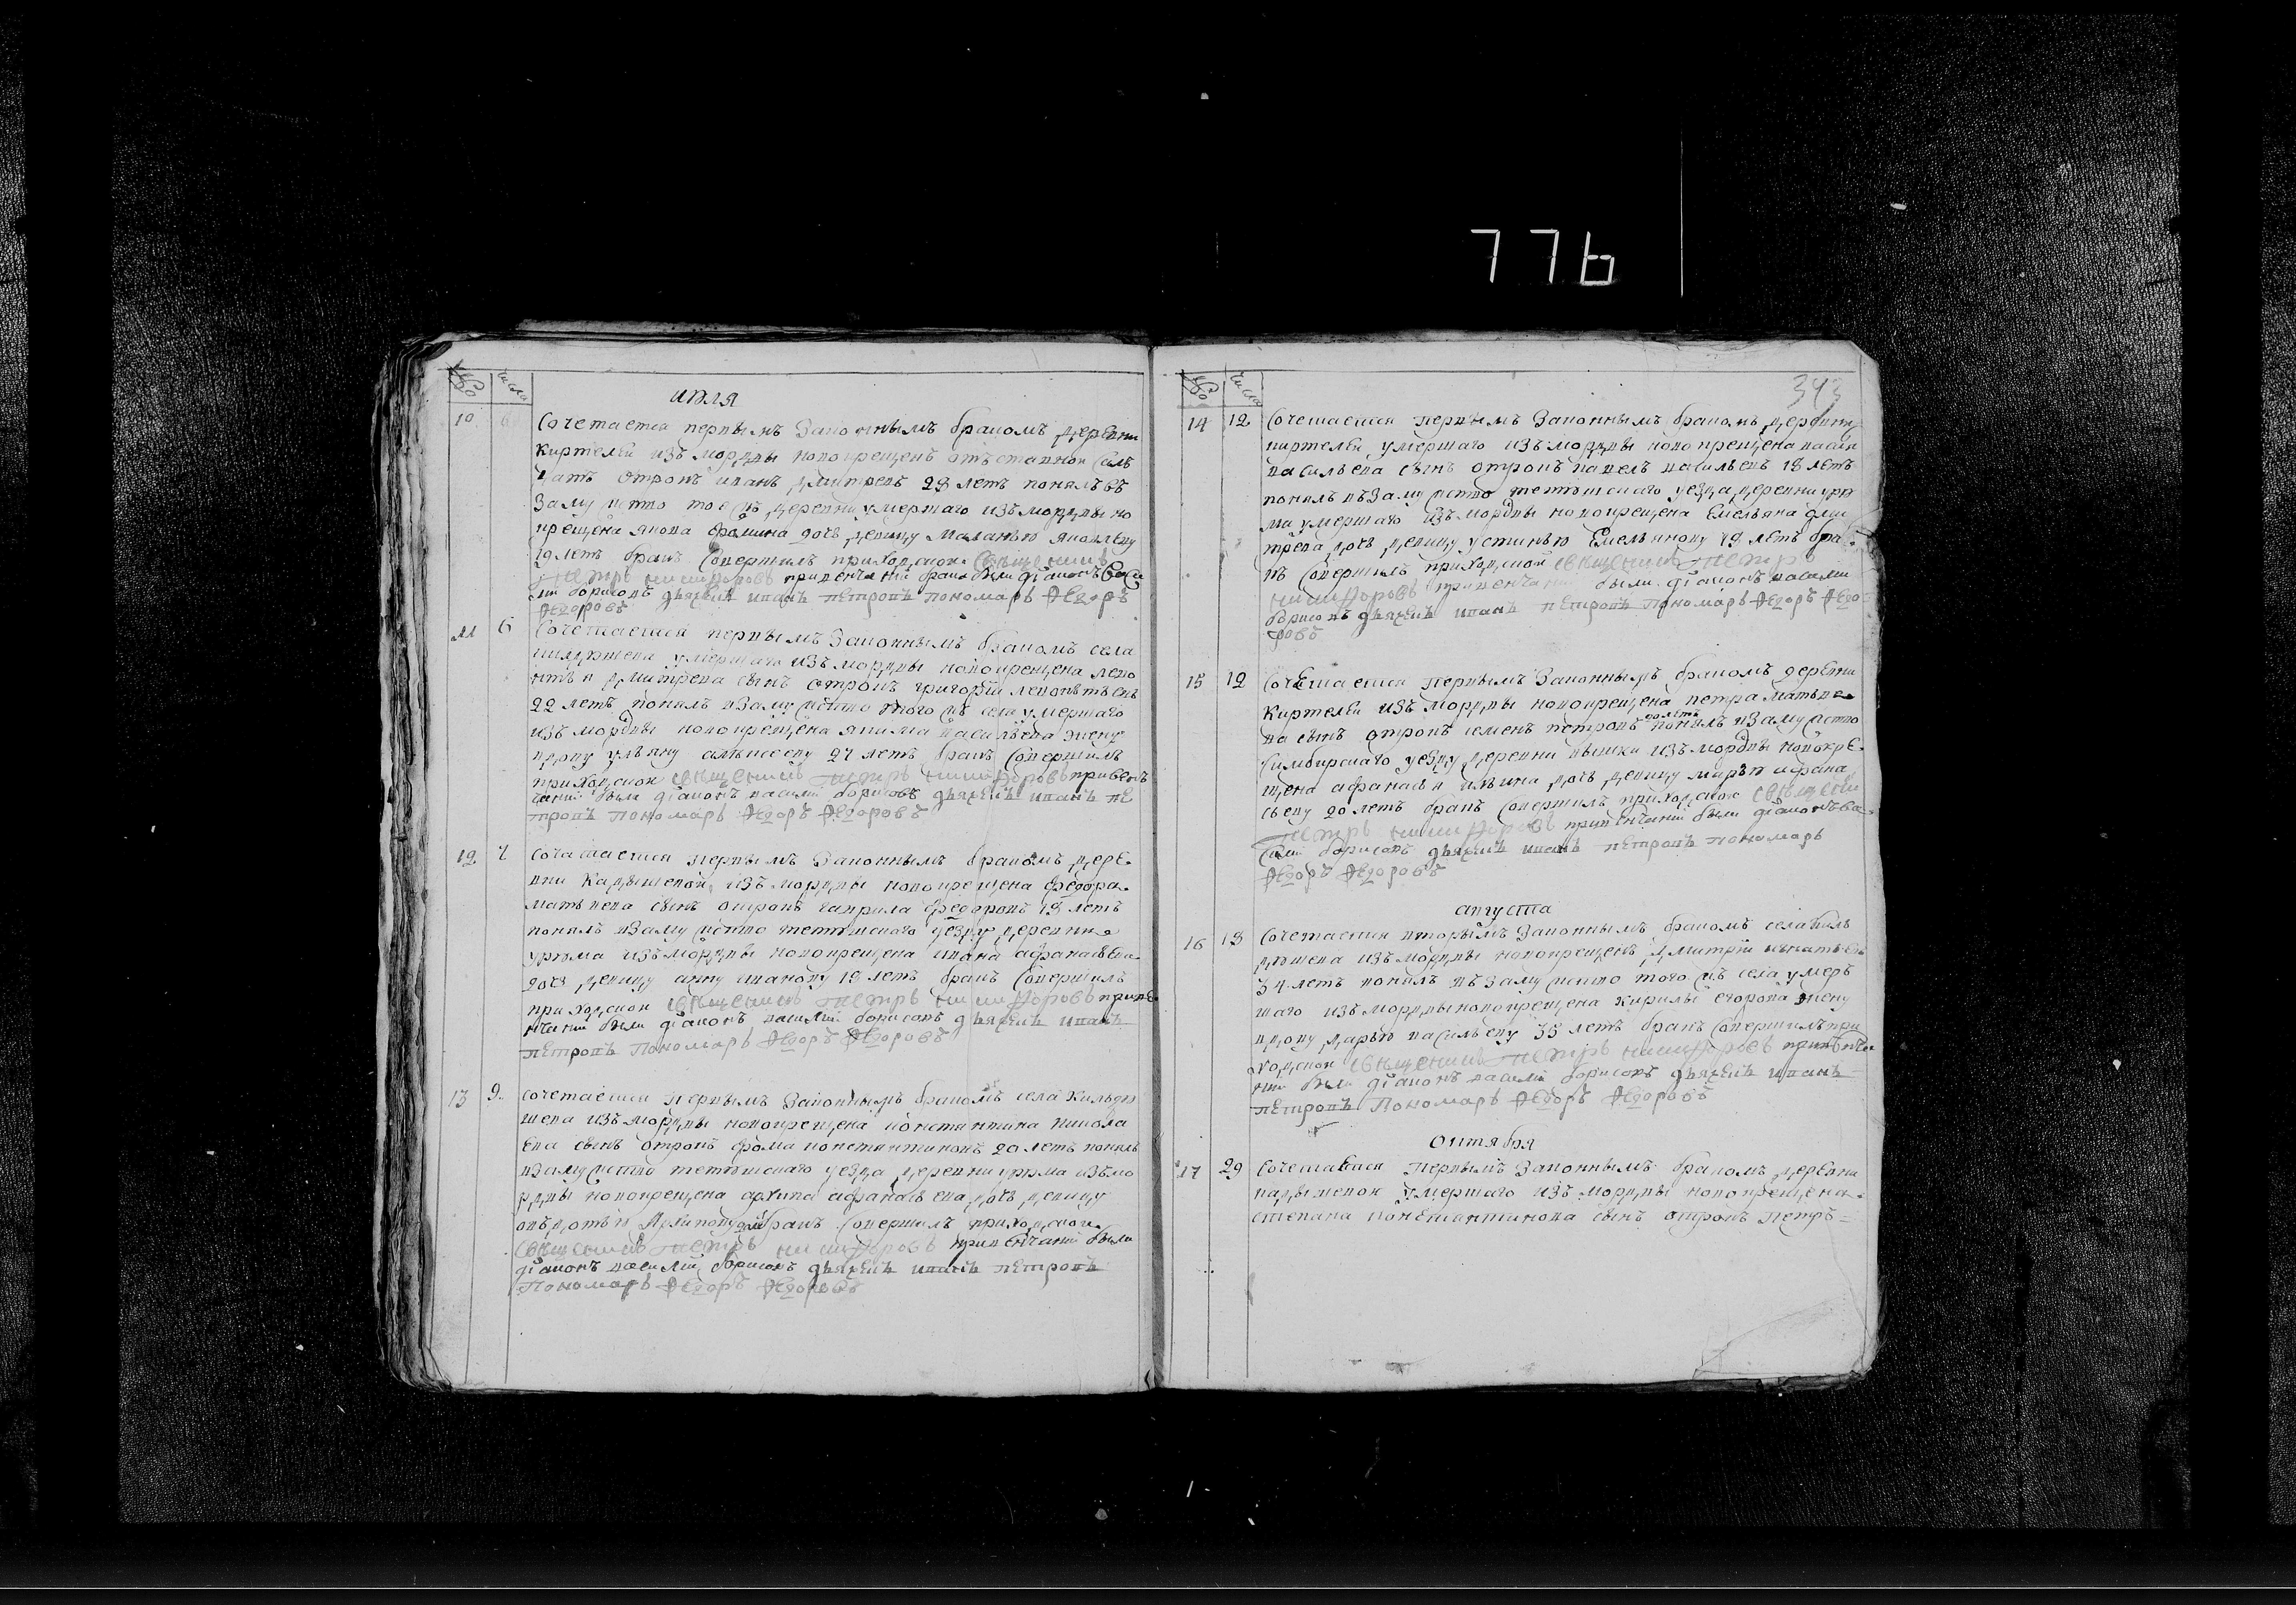 776
№ числа
июля
10 6 Сочетается первымъ Законнымъ бракомъ деревни
Киртелей изъ мордвы новокрещенъ отъставной сол
датъ отрокъ иванъ дмитревъ 28 летъ понялъ въ
Замужство тоежъ деревни умершаго изъ мордвы но
крещена якова фомина дочь девицу Маланью яковлеву
19 летъ бракъ Совершилъ приходской Священникъ
Петръ никифоровъ привенчании брака были дiаконъ Васи
лий борисовъ дьячекъ иванъ петровъ пономарь Федоръ
Федоровъ
11 6 Сочетается первымъ Законнымъ бракомъ села
килдюшева умершаго изъ мордвы новокрещена лево
нтья дмитрева сынъ отрокъ григорiй левонтьевъ
22 летъ понялъ взамужство того жъ села умершаго
изъ мордвы новокрещена якима васильева жену
вдову ульяну алексееву 27 летъ бракъ Совершилъ
приходской священникъ Петръ никифоровъ привен
чании были дiаконъ василий борисовъ дьячекъ иванъ пе
тровъ пономарь Федоръ Федоровъ
12 7 сочатается первымъ Законнымъ бракомъ дере
вни Кадышевой изъ мордвы новокрещена федора
матвеева сынъ отрокъ гаврила федоровъ 18 летъ
понялъ взамужство тетюшского уезду деревни
урюма изъ мордвы новокрещена ивана афанасьева
дочь девицу анну иванову 19 летъ бракъ Совершилъ
приходской священникъ Петръ никифоровъ приве
нчании были дiаконъ василий борисовъ дьячекъ иванъ
петровъ Пономарь Федоръ Федоровъ
13 9 сочетается первымъ Законнымъ бракомъ села Кильдю
шева изъ мордвы новокрещена константина никола
ева сынъ отрокъ фома константиновъ 20 летъ понялъ
взамужство тетюшскаго уезда деревни урюма изъ мо
рдвы новокрещена архипа афанасьева дочь девицу
овдотью Архипову бракъ Совершилъ приходской
Священникъ Петръ никифоровъ привенчании были
дiаконъ василий борисовъ дьячекъ иванъ петровъ
Пономарь Федоръ Федоровъ
№ числа
343
14 12 Сочетается первымъ Законнымъ бракомъ деревни
киртелей умершаго изъ мордвы новокрещена васил
васильева сынъ отрокъ павелъ васильевъ 18 летъ
понялъ въ Замужство тетюшскаго уезда деревни урю
ма умершаго изъ мордвы новокрещена Емельяна дми
трева дочь девицу устинью Емельянову 19 летъ бра
къ Совершилъ приходской священникъ Петръ
никифоровъ привенчании были дiаконъ василий
борисовъ дьячекъ иванъ петровъ пономарь Федоръ Федо
ровъ
15 12 СочЕтается первымъ Законнымъ бракомъ деревни
Киртелей изъ мордвы новокрещена петра матвее
ва сынъ отрокъ семенъ петровъ 20 летъ понялъ взамужство
Симбирскаго уезду деревни вышки изъ мордвы новокре
щена афанасья дочь девицу марью афана
сьеву 20 летъ бракъ Совершилъ приходской священни
Петръ никифоровъ привенчании были дiаконъ ва
Силий борисовъ дьячекъ иванъ петровъ пономарь
Федоръ Федоровъ
августа
16 18 Сочетается вторымъ Законнымъ бракомъ села киль
дюшева изъ мордвы новокрещенъ дмитрий
34 летъ понялъ въ замужство того жъ села умер
шаго изъ мордвы новокрещена кирилы егорова жену
вдову дарью васильеву 35 летъ бракъ Совершилъ при
ходской священникъ Петръ никифоровъ привенча
нии были дiаконъ василий борисовъ дьячекъ иванъ
петровъ Пономарь Федоръ Федоровъ
октября
17 29 Сочетается Первымъ Законнымъ бракомъ деревни
кадышевой умершаго изъ мордвы новокрещена
степана константинова сынъ отрокъ Петръ